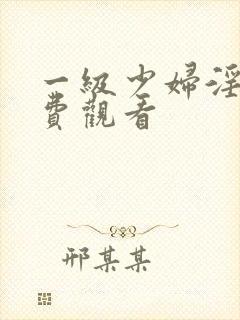 一級少婦淫
費觀看
邢某某